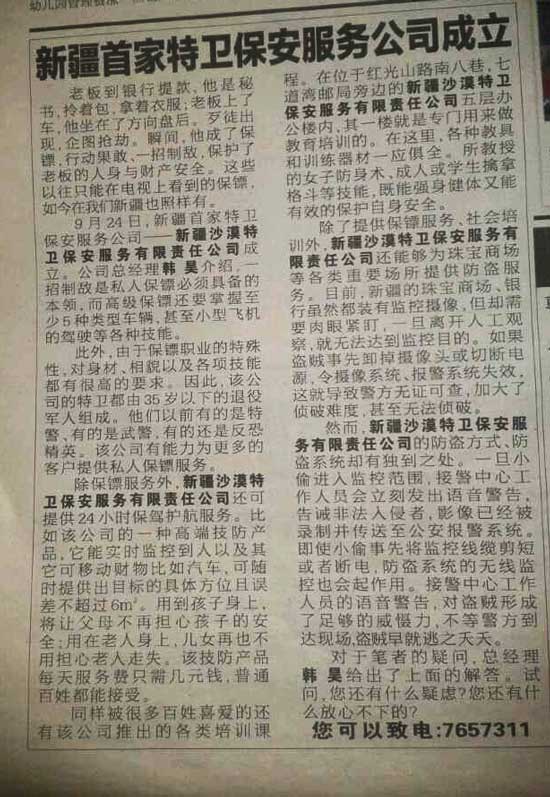 新疆首家特卫保安服务公司成立
老板到银行提款，他是秘
书，拎着包，拿着衣服；老板上了
车，他坐在了方向盘后。歹徒出
现，企图抢劫。瞬间，他成了保
镖，行动果敢、一招制敌，保护了
老板的人身与财产安全。这些
以往只能在电视上看到的保镖，
如今在我们新疆也照样有。
9月24日，新疆首家特卫
保安服务公司——新疆沙漠特
卫保安服务有限责任公司成
立。公司总经理韩昊介绍，一
招制敌是私人保镖必须具备的
本领，而高级保镖还要掌握至
少5种类型车辆，甚至小型飞机
的驾驶等各种技能。
此外，由于保镖职业的特殊
性，对身材、相貌以及各项技能
都有很高的要求。因此，该公
司的特卫都由35岁以下的退役
军人组成。他们以前有的是特
警、有的是武警，有的还是反恐
精英。该公司有能力为更多的
客户提供私人保镖服务。
除保镖服务外，新疆沙漠特
卫保安服务有限责任公司还可
提供24小时保驾护航服务。比
如该公司的一种高端技防产
品，它能实时监控到人以及其
它可移动财物比如汽车，可随
时提供出目标的具体方位且误
差不超过6m²。用到孩子身上，
将让父母不再担心孩子的安
全；用在老人身上，儿女再也不
用担心老人走失。该技防产品
每天服务费只需几元钱，普通
百姓都能接受。
同样被很多百姓喜爱的还
有该公司推出的各类培训课
程。在位于红光山路南八巷，七
道湾邮局旁边的新疆沙漠特卫
保安服务有限责任公司五层办
公楼内，其一楼就是专门用来做
教育培训的。在这里，各种教具
和训练器材一应俱全。所教授
的女子防身术、成人或学生擒拿
格斗等技能，既能强身健体又能
有效的保护自身安全。
除了提供保镖服务、社会培
训外，新疆沙漠特卫保安服务有
限责任公司还能够为珠宝商场
等各类重要场所提供防盗服
务。目前，新疆的珠宝商场、银
行虽然都装有监控摄像，但却需
要肉眼紧盯，一旦离开人工观
察，就无法达到监控目的。如果
盗贼事先卸掉摄像头或切断电
源，令摄像系统、报警系统失效，
这就导致警方无证可查，加大了
侦破难度，甚至无法侦破。
然而，新疆沙漠特卫保安服
务有限责任公司的防盗方式、防
盗系统却有独到之处。一旦小
偷进入监控范围，接警中心工
作人员会立刻发出语音警告，
告诫非法入侵者，影像已经被
录制并传送至公安报警系统。
即使小偷事先将监控线缆剪短
或者断电，防盗系统的无线监
控也会起作用。接警中心工作
人员的语音警告，对盗贼形成
了足够的威慑力，不等警方到
达现场，盗贼早就逃之夭夭。
对于笔者的疑问，总经理
韩昊给出了上面的解答。试
问，您还有什么疑虑？您还有什
么放心不下的？
您可以致电：7657311